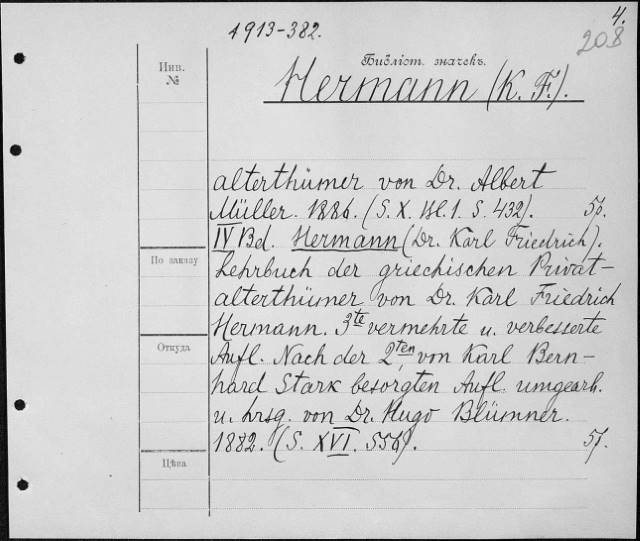 4.
1913-382.
208
Библіот. значекъ.
Инв.
№
Hermann (K. F.).
alterthümer von Dr. Albert
Müller. 1886. (S. X. Bl. 1. S. 432). 5р.
IV Bd. Hermann (Dr. Karl Friedrich).
По заказу
Lehrbuch der griechischen Privat-
alterthümer von Dr. Karl Friedrich
Hermann. 3te vermehrte u. verbesserte
Откуда
Aufl. Nach der 2ten, von Karl Bern-
hard Stark besorgten Aufl. umgearb.
u. hrsg. von Dr. Hugo Blümner.
1882. (S. XVI. 556). 5р.
Цѣна